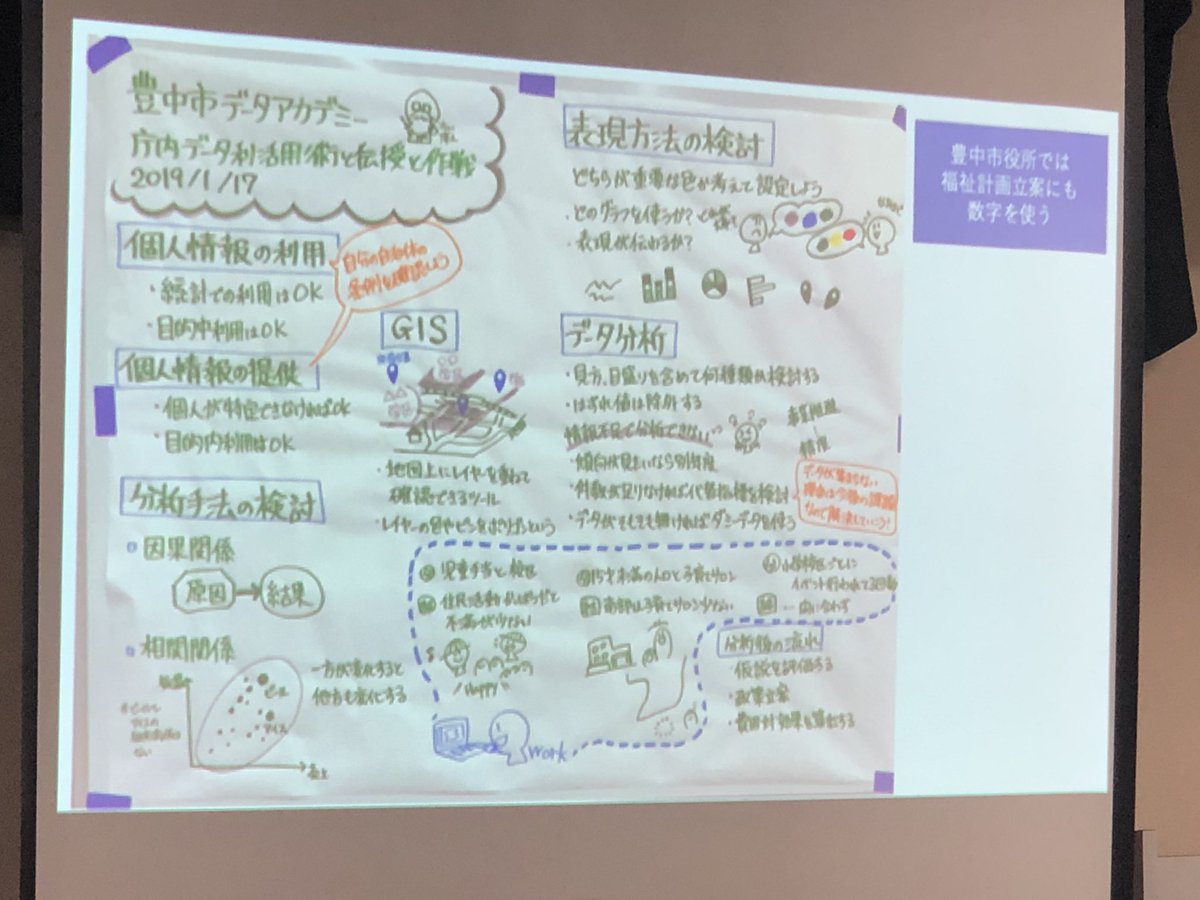 豊中市データアカデミー
庁内データ利活用術を伝授と作戦
2019/1/17
個人情報の利用
・統計での利用はOK
・目的内利用はOK
自分の自治体の
条例を確認しよう
個人情報の提供
・個人が特定できなければOK
・目的内利用はOK
分析手法の検討
因果関係
原因→結果
相関関係
一方が変化すると
他方も変化する
ビール
アイス
GIS
・地図上にレイヤーを重ねて
確認できるツール
・レイヤーの色やピンを
という
表現方法の検討
どちらが重要な色か考えて設定しよう
・どのグラフを使うか?
・表現が伝わるか?
データ分析
・見方、目盛りを含めて何種類か検討する
・はずれ値は除外する
情報不足で分析できない
・傾向が見たいなら別年度
・件数が足りなければ代替指標を検討
・データがそもそも無ければダミーデータを使う
精度
データが集まらない
理由は今後の課題
なので解決していこう!
児童手当と
住民活動
不満が少ない
Happy
15才未満の人口と子育てサロン
南部は子育てサロン少ない
小学校区ごとに
work
分析後の流れ
・仮説を評価する
・政策立案
・費用対効果を算出する
豊中市役所では
福祉計画立案にも
数字を使う